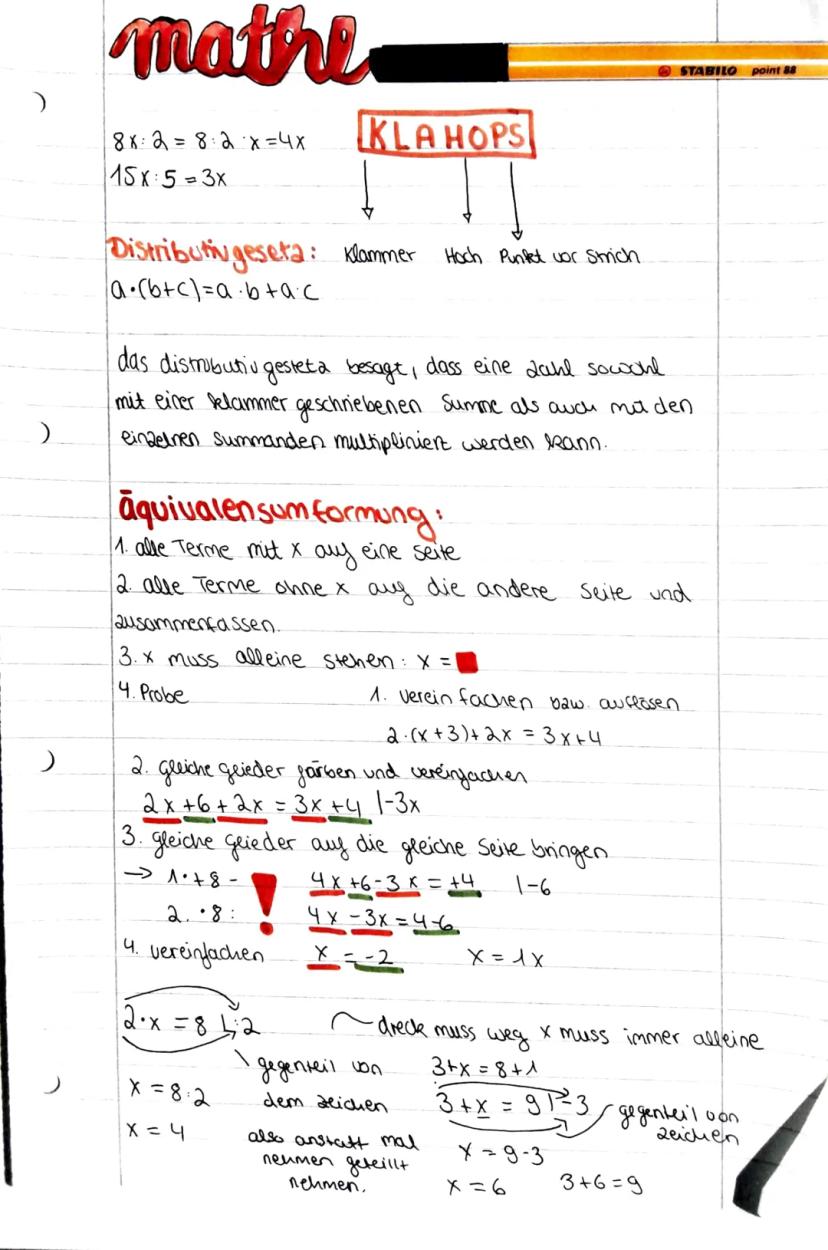 mathe
STABILO point 88
8x:2 = 8:2·x=4x
KLAHOPS
15x:5=3x
Distributivgesetz: Klammer Hoch Punkt vor Strich
a·(b+c)=a·b+a·c
das distributivgestetz besagt, dass eine zahl sowohl
mit einer klammer geschriebenen Summe als auch mit den
einzelnen Summanden multipliniert werden kann.
äquivalensumformung:
1. alle Terme mit x auf eine seite
2. alle Terme ohne x auf die andere Seite und
zusammenfassen.
3. x muss alleine stehen: x =
4. Probe
1. vereinfachen bzw. auflösen
2·(x+3)+2x = 3x+4
2. gleiche glieder färben und vereinfachen
2x+6+2x = 3x+4 |-3x
3. gleiche glieder auf die gleiche Seite bringen
→ 1·+8- ! 4x+6-3x = +4 |-6
2. ·8: 4x-3x=4-6
4. vereinfachen x = -2 x = 1x
2·x = 8 |:2
dreck muss weg x muss immer alleine
gegenteil von
dem zeichen
also anstatt mal
nehmen geteillt
nehmen.
x = 8:2
x = 4
3+x = 8+1
3+x = 9 |-3
gegenteil von
zeichen
x = 9-3
x = 6 3+6=9